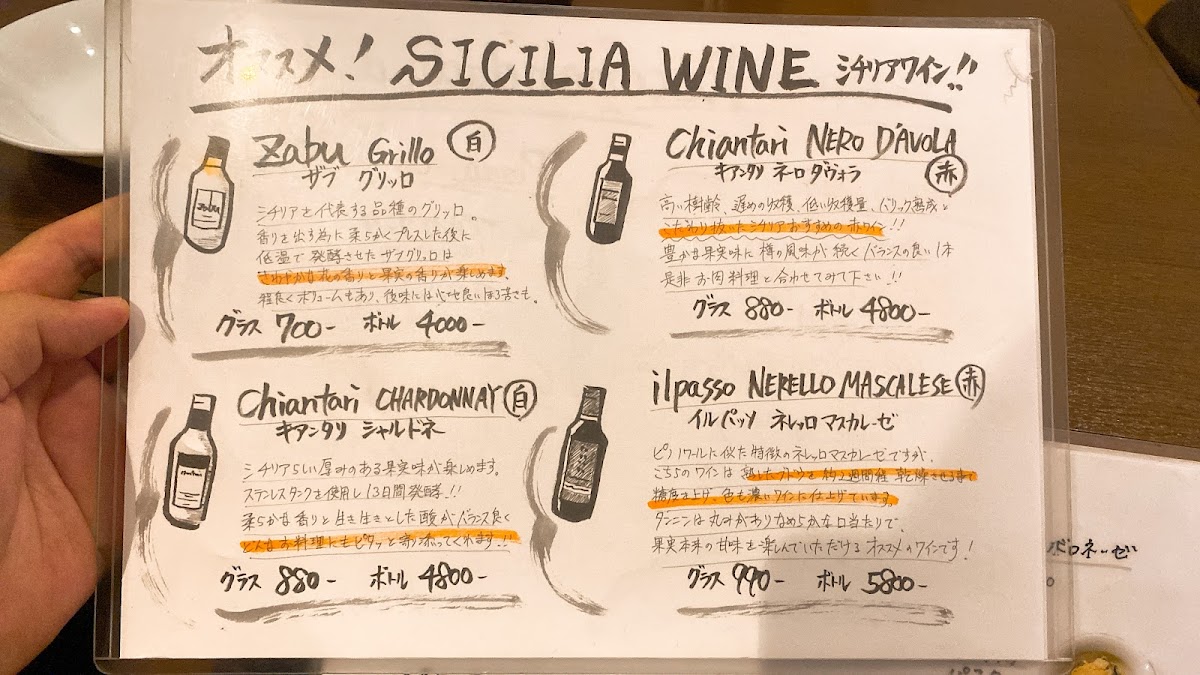 オススメ! SICILIA WINE シチリアワイン!!
Zabu Grillo 白
ザブ グリッロ
zabu
シチリアを代表する品種のグリッロ。
香りを出す為に柔らかくプレスした後に
低温で発酵させたザブグリッロは
さわやかな花の香りと果実の香りが楽しめます。
程良くボリュームもあり、後味には心地良いほろ苦さも。
グラス 700- ボトル 4000-
Chiantari NERO D'AVOLA
キアンタリ ネーロ ダヴォラ 赤
高い樹齢、遅めの収穫、低い収穫量、バリック熟成と
こだわり抜いたシチリアおすすめの赤ワイン!!
豊かな果実味に樽の風味が続くバランスの良い1本
是非お肉料理と合わせてみて下さい!!
グラス 880- ボトル 4800-
Chiantari CHARDONNAY 白
キアンタリ シャルドネ
シチリアらしい厚みのある果実味が楽しめます。
ステンレスタンクを使用し13日間発酵!!
柔らかな香りと生き生きとした酸がバランス良く
どんなお料理にもピタッと寄り添ってくれます!!
グラス 880- ボトル 4800-
ilpasso NERELLO MASCALESE 赤
イルパッソ ネレッロ マスカレーゼ
ピノノワールに似た特徴のネレッロマスカレーゼですが、
こちらのワインは熟したブドウを約2週間程乾燥させるまで
糖度を上げ、色も濃いワインに仕上げています。
タンニンは丸みがありなめらかな口当たりで、
果実本来の甘味を楽しんでいただけるオススメのワインです!
グラス 990- ボトル 5800-
ボロネーゼ